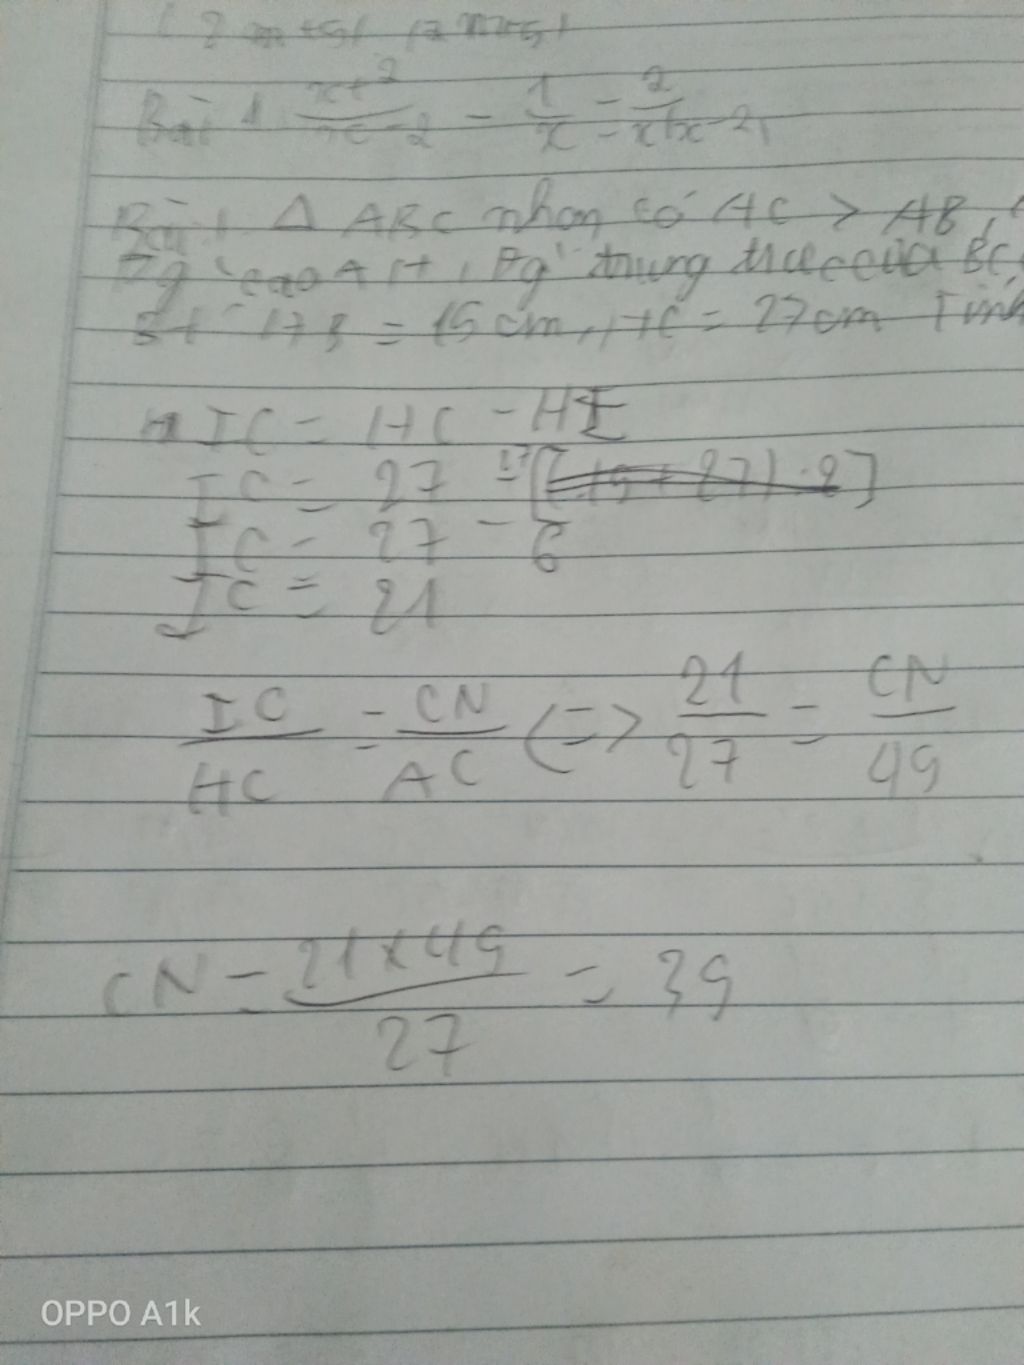 Bài 1 x+2/x-2 - 1/x = 2/x(x-2)
Bài 1 Δ ABC nhọn có AC > AB,
Đg cao AH, Đg trung trực của BC,
HB = 15cm, HC = 27cm Tính
IC = HC - HI
IC = 27 -
IC = 27 - 6
IC = 21
IC/HC = CN/AC <=> 21/27 = CN/49
CN = 21x49/27 = 39
OPPO A1k